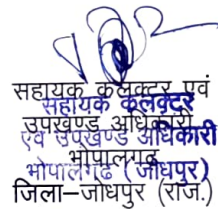 सहायक कलेक्टर एवं
सहायक कलेक्टर
उपखण्ड अधिकारी
एवं उपखण्ड अधिकारी
भोपालगढ़
भोपालगढ़ (जोधपुर)
जिला–जोधपुर (राज.)